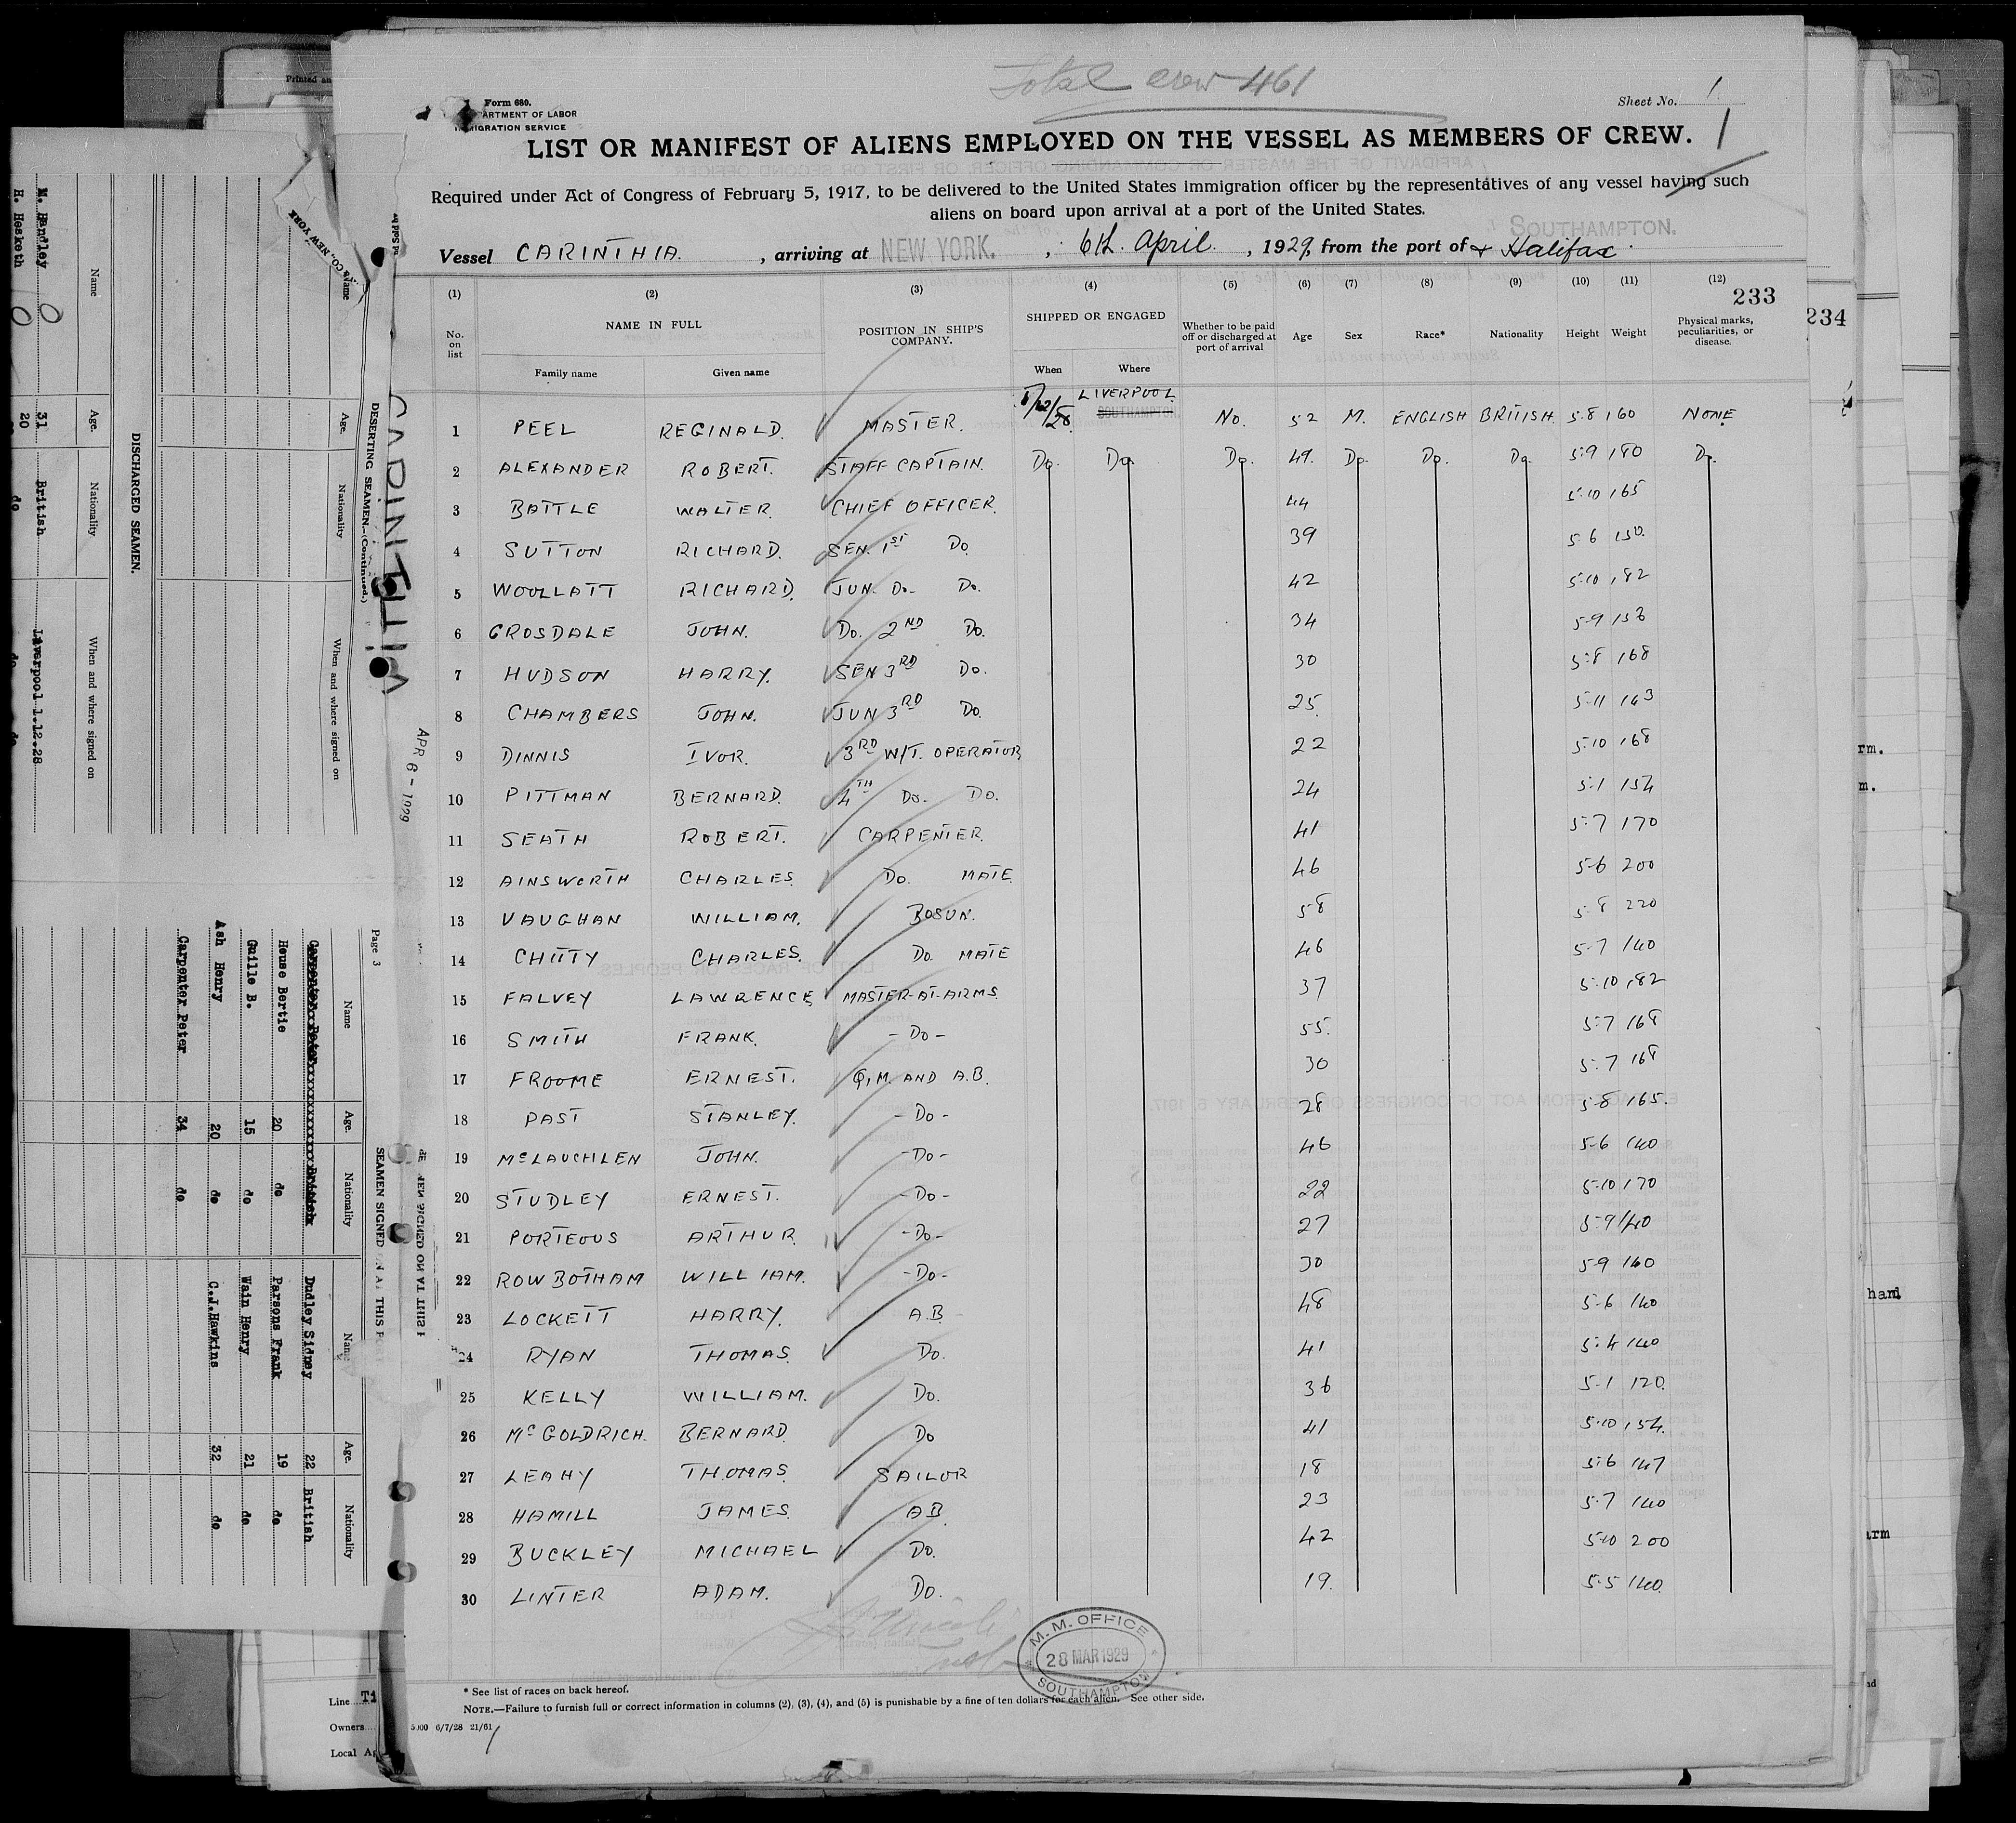 Total crew 461
Form 680.
ARTMENT OF LABOR
IGRATION SERVICE
Sheet No. 1
LIST OR MANIFEST OF ALIENS EMPLOYED ON THE VESSEL AS MEMBERS OF CREW. 1
Required under Act of Congress of February 5, 1917, to be delivered to the United States immigration officer by the representatives of any vessel having such
aliens on board upon arrival at a port of the United States.
SOUTHAMPTON.
Vessel CARINTHIA. , arriving at NEW YORK. , 6th. April. , 1929, from the port of & Halifax.
(1) (2) (3) (4) (5) (6) (7) (8) (9) (10) (11) (12)
233
234
No. on list NAME IN FULL POSITION IN SHIP'S COMPANY. SHIPPED OR ENGAGED Whether to be paid off or discharged at port of arrival Age Sex Race* Nationality Height Weight Physical marks, peculiarities, or disease.
Family name Given name When Where
LIVERPOOL
SOUTHAMPTON
1 PEEL REGINALD. MASTER. 1/12/28. No. 52 M. ENGLISH BRITISH. 5-8 160 NONE
2 ALEXANDER ROBERT. STAFF CAPTAIN. Do. Do. Do. 49. Do. Do. Do. 5-9 180 Do.
3 BATTLE WALTER. CHIEF OFFICER. 44 5-10 165
4 SUTTON RICHARD. SEN. 1ST Do. 39 5-6 150.
5 WOOLLATT RICHARD. JUN. Do. Do. 42 5-10 182
6 CROSDALE JOHN. Do. 2ND Do. 34 5-9
7 HUDSON HARRY. SEN 3RD Do. 30 5-8 168
8 CHAMBERS JOHN. JUN 3RD Do. 25. 5-11 163
9 DINNIS IVOR. 3RD W/T. OPERATOR 22 5-10 168
10 PITTMAN BERNARD. 4TH Do. Do. 24 5-1 154
11 SEATH ROBERT. CARPENTER. 41 5-7 170
12 AINSWORTH CHARLES. Do. MATE. 46 5-6 200
13 VAUGHAN WILLIAM. BOSUN. 58 5-8 220
14 CHITTY CHARLES. Do. MATE 46 5-7 140
15 FALVEY LAWRENCE MASTER-AT-ARMS. 37 5-10 182
16 SMITH FRANK. -Do- 55. 5-7 168
17 FROOME ERNEST. Q.M. AND A.B. 30 5-7 168
18 PAST STANLEY. -Do- 28 5-8 165.
19 McLAUCHLEN JOHN. -Do- 46 5-6 140
20 STUDLEY ERNEST. -Do- 22 5-10 170
21 PORTEOUS ARTHUR. -Do- 27 5-9 140
22 ROWBOTHAM WILLIAM. -Do- 30 5-9 140
23 LOCKETT HARRY. A.B. 48 5-6 140
24 RYAN THOMAS. Do. 41 5-4 140
25 KELLY WILLIAM. Do. 36 5-1 120.
26 McGOLDRICH. BERNARD Do 41 5-10 154.
27 LEAHY THOMAS. SAILOR 18 5-6 147
28 HAMILL JAMES. AB 23 5-7 140
29 BUCKLEY MICHAEL Do. 42 5-10 200
30 LINTER ADAM. Do. 19. 5-5 140.
M.M. OFFICE
28 MAR 1929
SOUTHAMPTON
* See list of races on back hereof.
NOTE.—Failure to furnish full or correct information in columns (2), (3), (4), and (5) is punishable by a fine of ten dollars for each alien. See other side.
6/7/28 21/61
Printed an
CARINTHIA
APR 6 - 1929
& CO., NEW YORK
DESERTING SEAMEN.—(Continued.)
Name Age. Nationality When and where signed on
DISCHARGED SEAMEN.
Name Age. Nationality When and where signed on
M. Handley 31 British Liverpool 1.12.28
H. Hesketh 20 do do do
Page 3
SEAMEN SIGNED ON AT THIS PORT
Name Age. Nationality Name Age. Nationality
Carpenter Peter British Dudley Sidney 22 British
House Bertie 20 do Parsons Frank 19 do
Guille B. 15 do Wain Henry 21 do
Ash Henry 20 do C.J.Hawkins 32 do
Carpenter Peter 34 do
Line
Owners
Local Ag
rm.
m.
ham
arm
nd